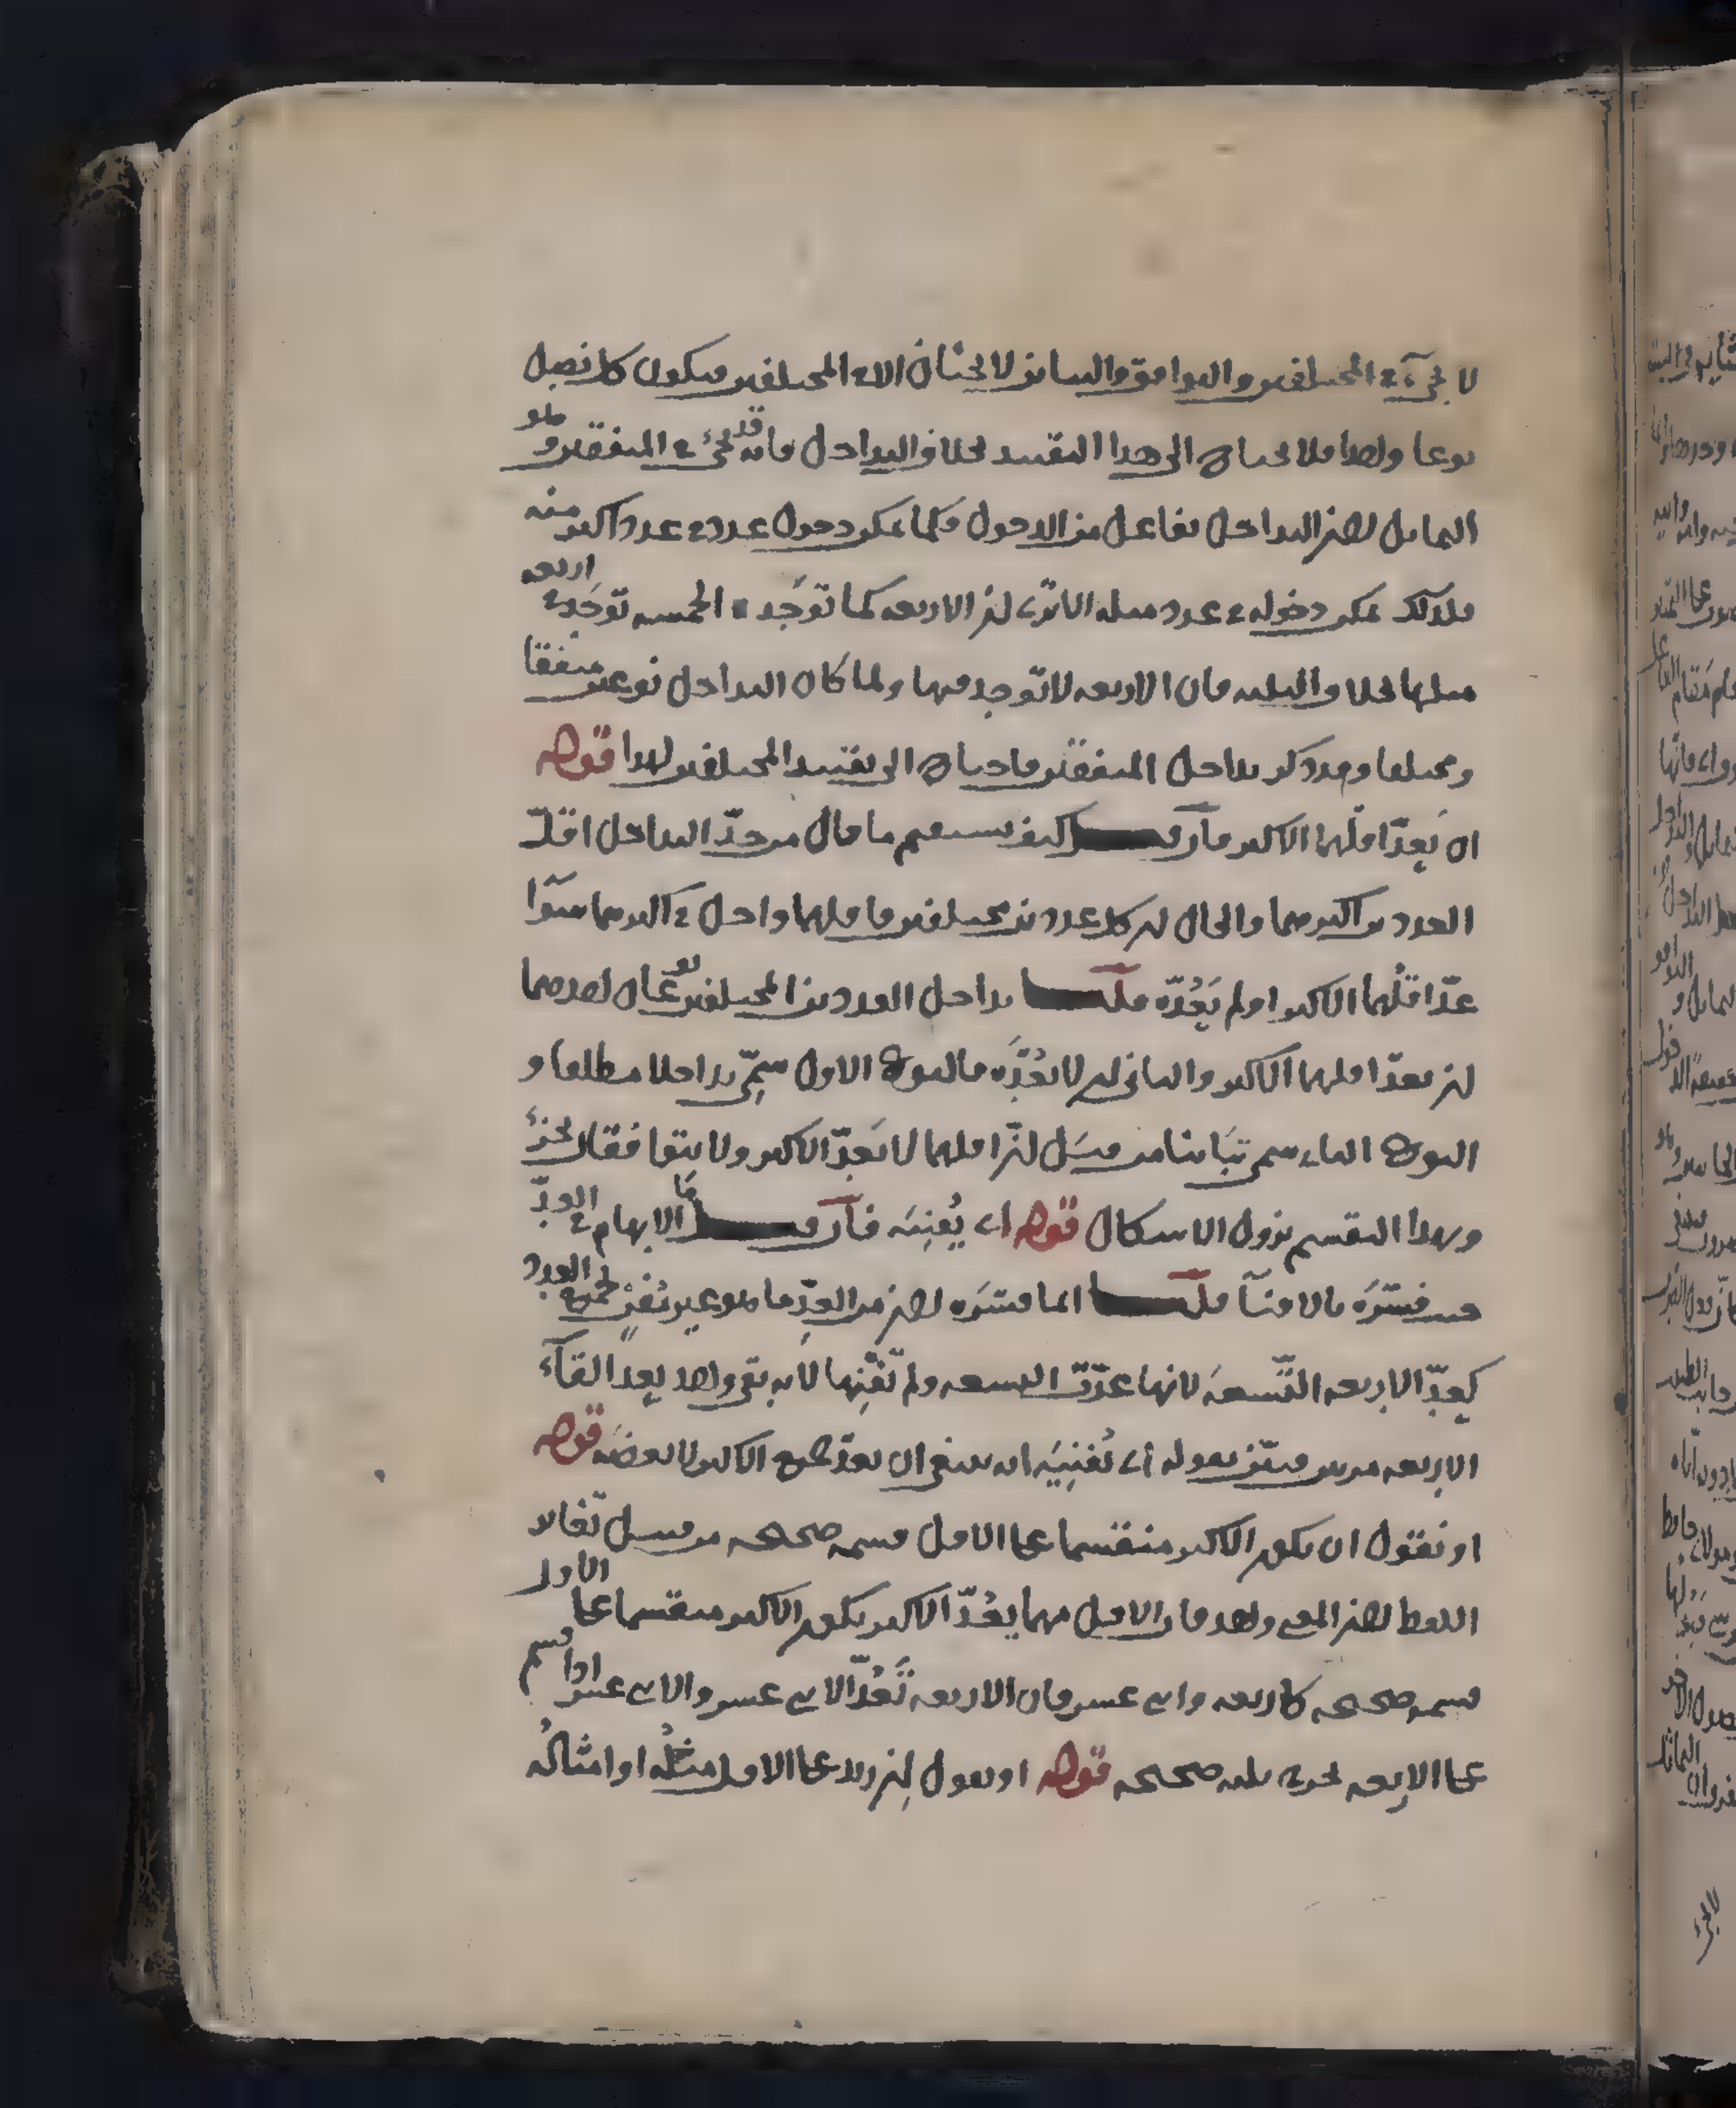 لا يجيء في المختلفين والتوافق والتباين لا يجيئان الا في المختلفين فيكون كل فصل
نوعا واحدا فلا يحتاج الى هذا التقييد بخلاف التداخل فانه قد يجيء في المتفقين وهو
التماثل لان التداخل تفاعل من الدخول فكما يمكن دخول عدد في عدد اكبر منه
فكذلك يمكن دخوله في عدد مثله الا ترى ان الاربعة كما توجد في الخمسة توجد في اربعة
مثلها بخلاف الثلثة فان الاربعة لا توجد فيها ولما كان التداخل نوعين متفقا
ومختلفا وقد ذكر تداخل المتفقين فاحتاج الى تقييد المختلفين لهذا قوله
ان يعد اقلهما الاكبر فان قلت كيف يستقيم ما قال من حد التداخل اقل
العددين اكبرهما والحال ان كل عددين مختلفين فاقلهما داخل في اكبرهما سوآ
عد اقلهما الاكبر او لم يعده قلت تداخل العددين المختلفين نوعان احدهما
ان يعد اقلهما الاكبر والثاني ان لا يعده فالنوع الاول سمي تداخلا مطلقا و
النوع الثاني سمي تباينا من قبل ان اقلهما لا يعد الاكبر ولا يتوافقان بجزء
وبهذا التقسيم يزول الاشكال قوله اي يفنيه فان قلت ما الابهام في العد
حيث فسره بالافناء قلت انما فسره لان من العد ما هو غير مفن لجميع العدد
كعد الاربعة التسعة لانها عدت التسعة ولم تفنها لانه بقي واحد بعد القآء
الاربعة مرتين فبين بقوله اي تفنيه انه ينبغي ان يعد جميع الاكبر لا بعضه قوله
او نقول ان يكون الاكبر منقسما على الاقل قسمة صحيحة من قبيل تفاد
اللفظ لان المعنى واحد فان الاقل مهما يعد الاكبر يكون الاكبر منقسما على الاول
قسمة صحيحة كاربعة واثني عشر فان الاربعة تعد الاثني عشر والاثني عشر اذا قسم
على الاربعة يخرج ثلثة صحيحة قوله او نقول ان زيد على الاقل مثله او امثاله